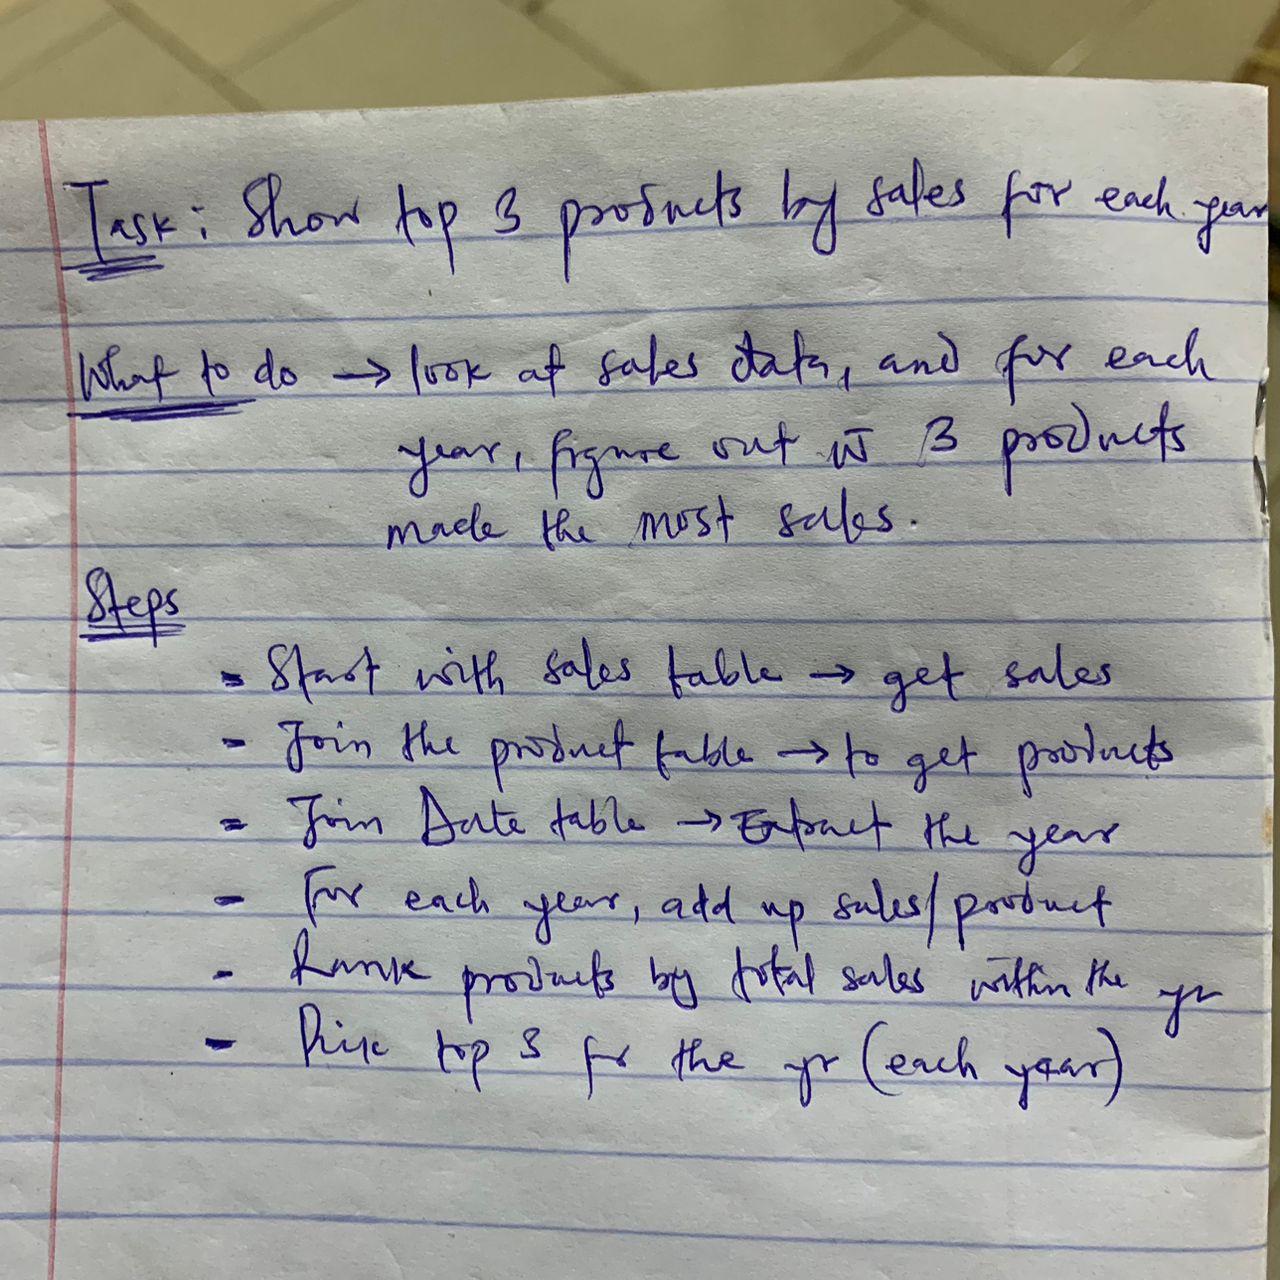 Task: Show top 3 products by sales for each year
What to do → look at sales data, and for each
year, figure out w 3 products
made the most sales.
Steps
- Start with sales table → get sales
- Join the product table → to get products
- Join Date table → Extract the year
- For each year, add up sales/product
- Rank products by total sales within the yr
- Pick top 3 for the yr (each year)